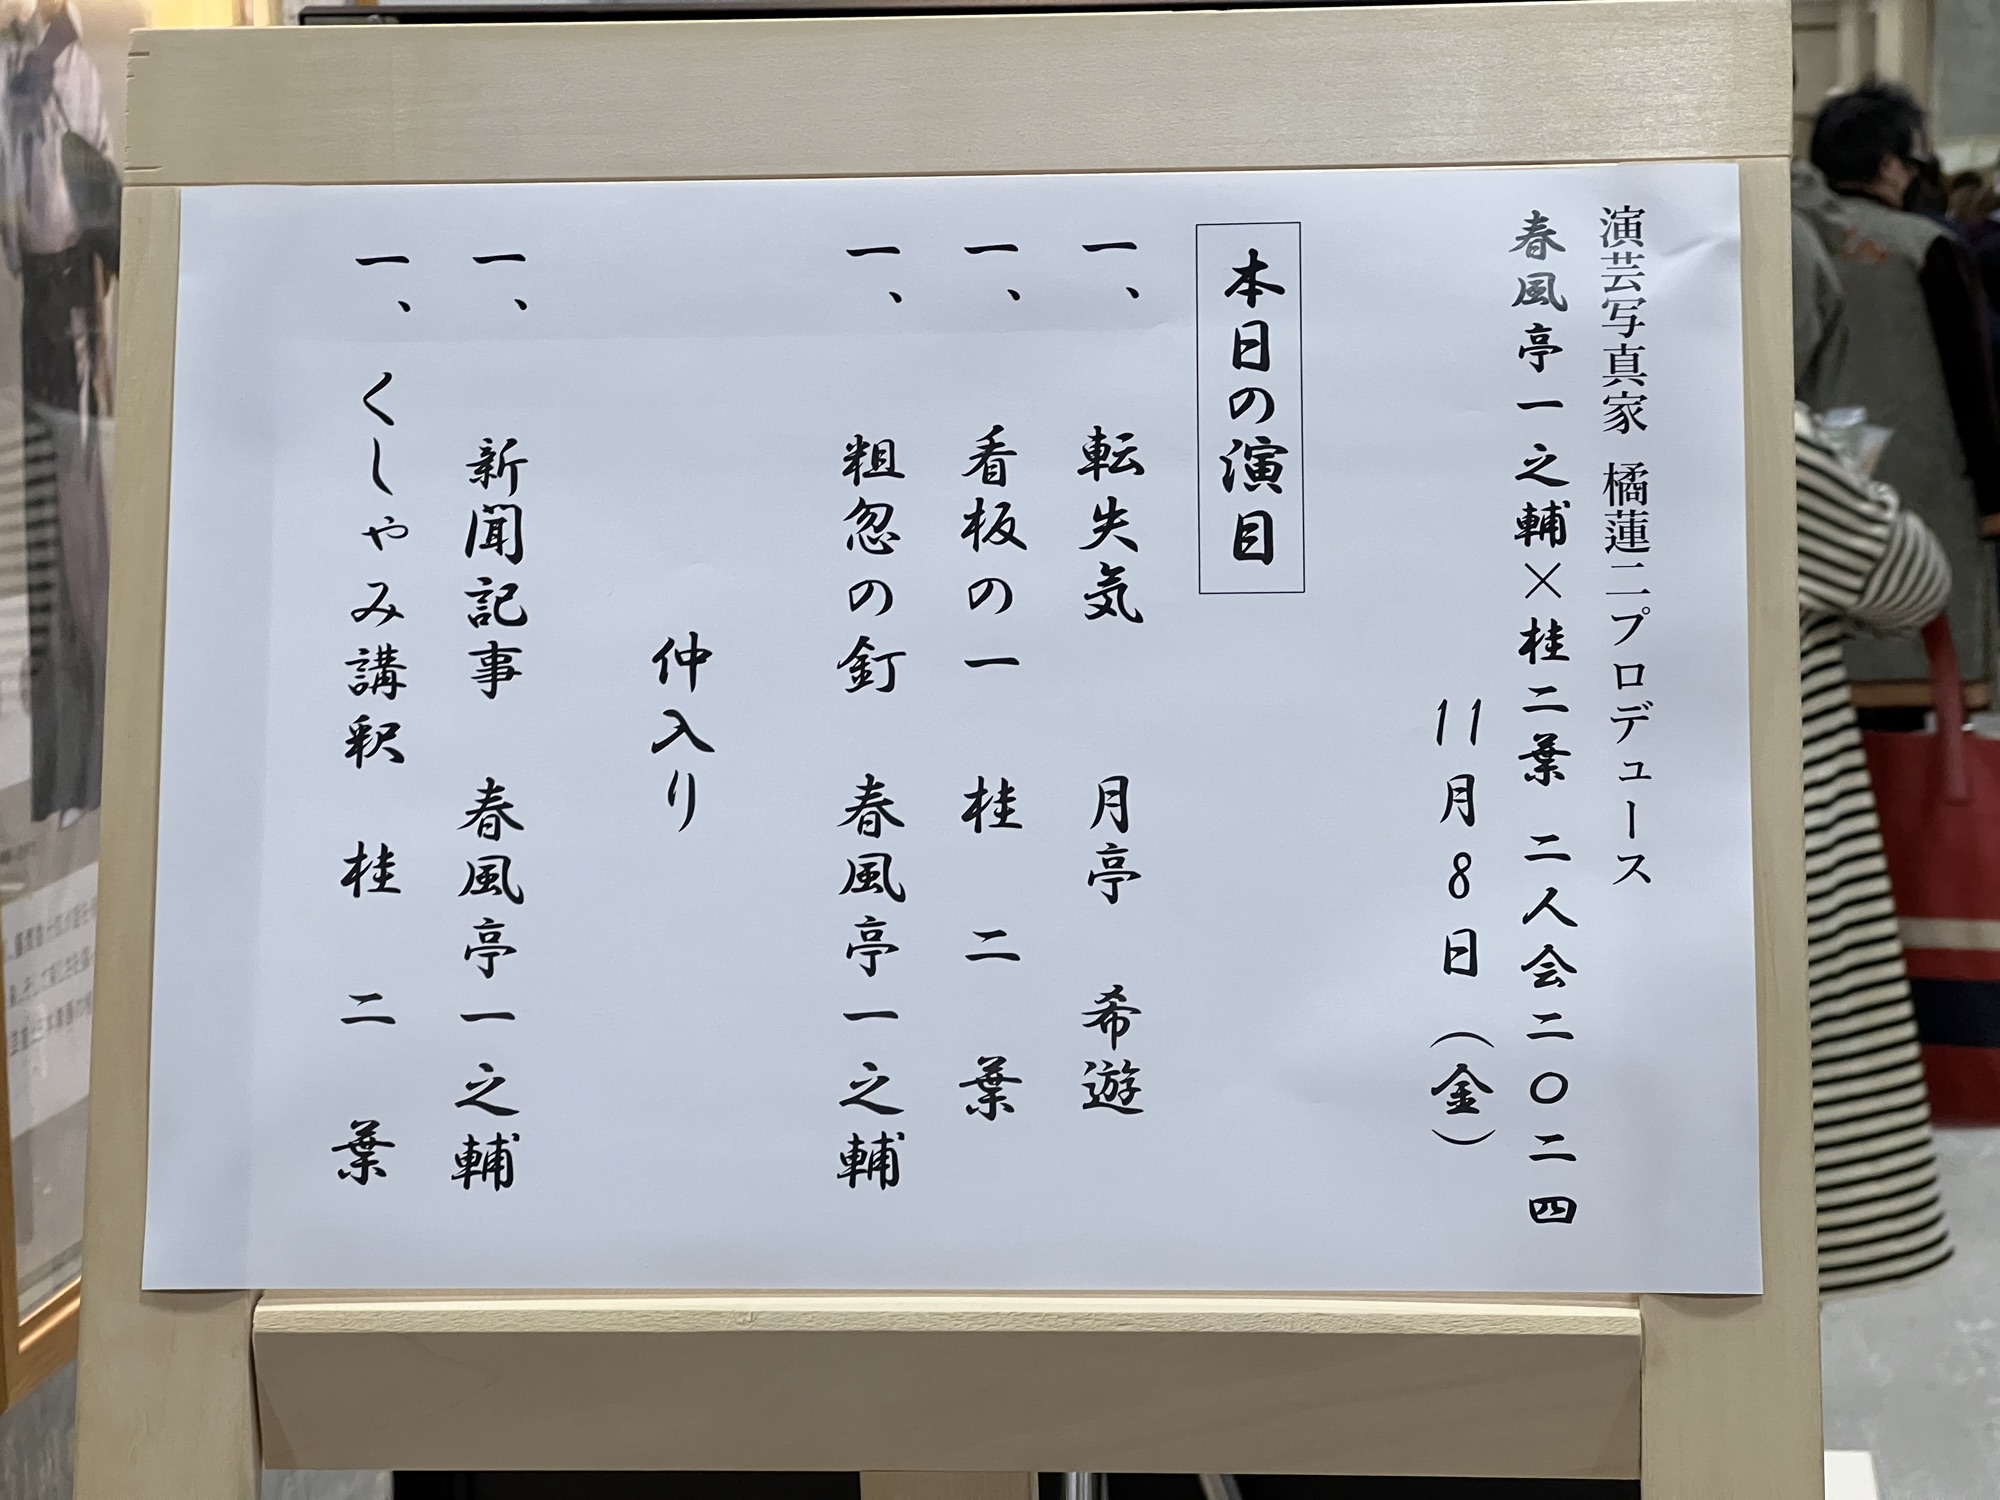 演芸写真家 橘蓮二プロデュース
春風亭一之輔×桂二葉 二人会二〇二四
11月8日（金）
本日の演目
一、 転失気 月亭 希遊
一、 看板の一 桂 二 葉
一、 粗忽の釘 春風亭一之輔
仲入り
一、 新聞記事 春風亭一之輔
一、くしゃみ講釈 桂 二 葉